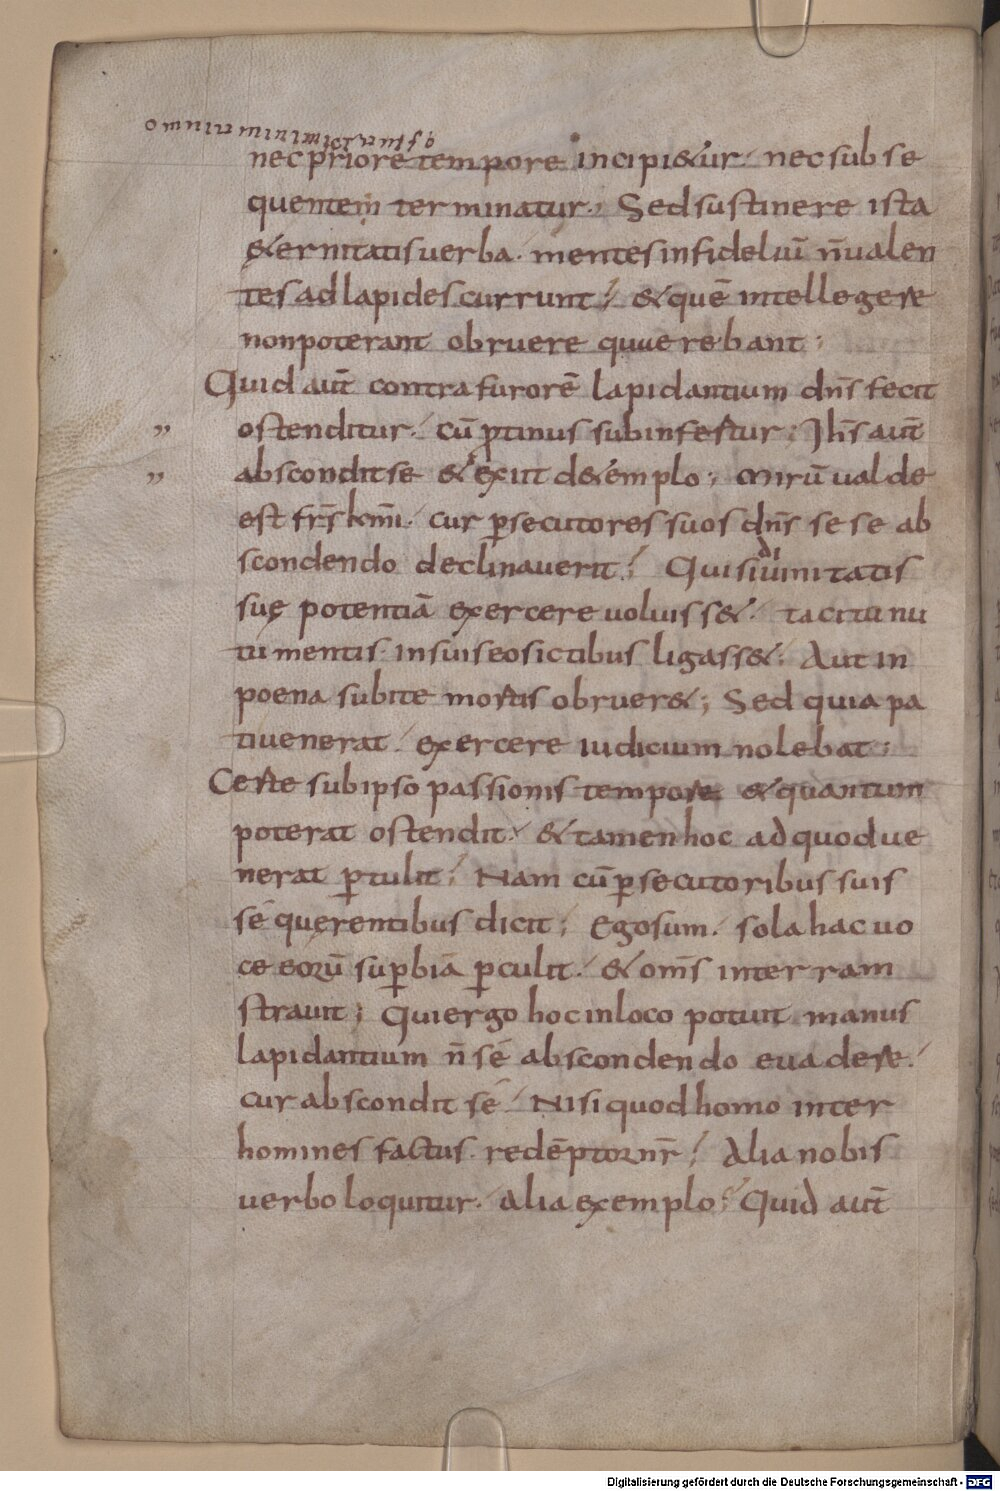 omnium inimicrum
nec priore tempore incipi&ur· nec subse
quentem terminatur·; Sed sustinere ista
&ernitatis uerba· mentes infideliū n̄ ualen
tes ad lapides currunt; & quē intellegere
non poterant obruere quuerebant;
Quid aut̄ contra furorē lapidantium dn̄s fecit
„ ostenditur· cū ꝓtinus subinfertur; Ih̄s aut̄
„ abscondit se & exiit de templo; Mirū ualde
est fr̄s km̄i· cur p̱secutores suos dn̄s se se ab
scondendo declinauerit; Qui si diuinitatis
suę potentiā exercere uoluiss&· tacitu nu
tu mentis· in suis eos ictibus ligass&; Aut in
poena subite mortis obruer&; Sed quia pa
ti uenerat· exercere iudicium nolebat;
Certe sub ipso passionis tempore & quantum
poterat ostendit· & tamen hoc ad quod ue
nerat p̱tulit; Nam cū p̱secutoribus suis
sé querentibus dicit; Ego sum· sola hac uo
ce eorū sup̱biā p̱culit· & om̄s inter ram
strauit; Qui ergo hoc in loco potuit manus
lapidantium n̄ sé abscondendo euadere·
cur abscondit sé· Nisi quod homo inter
homines factus· redēptor nr̄; Alia nobis
uerbo loquitur· alia exemplo; Quid aut̄
Digitalisierung gefördert durch die Deutsche Forschungsgemeinschaft - DFG